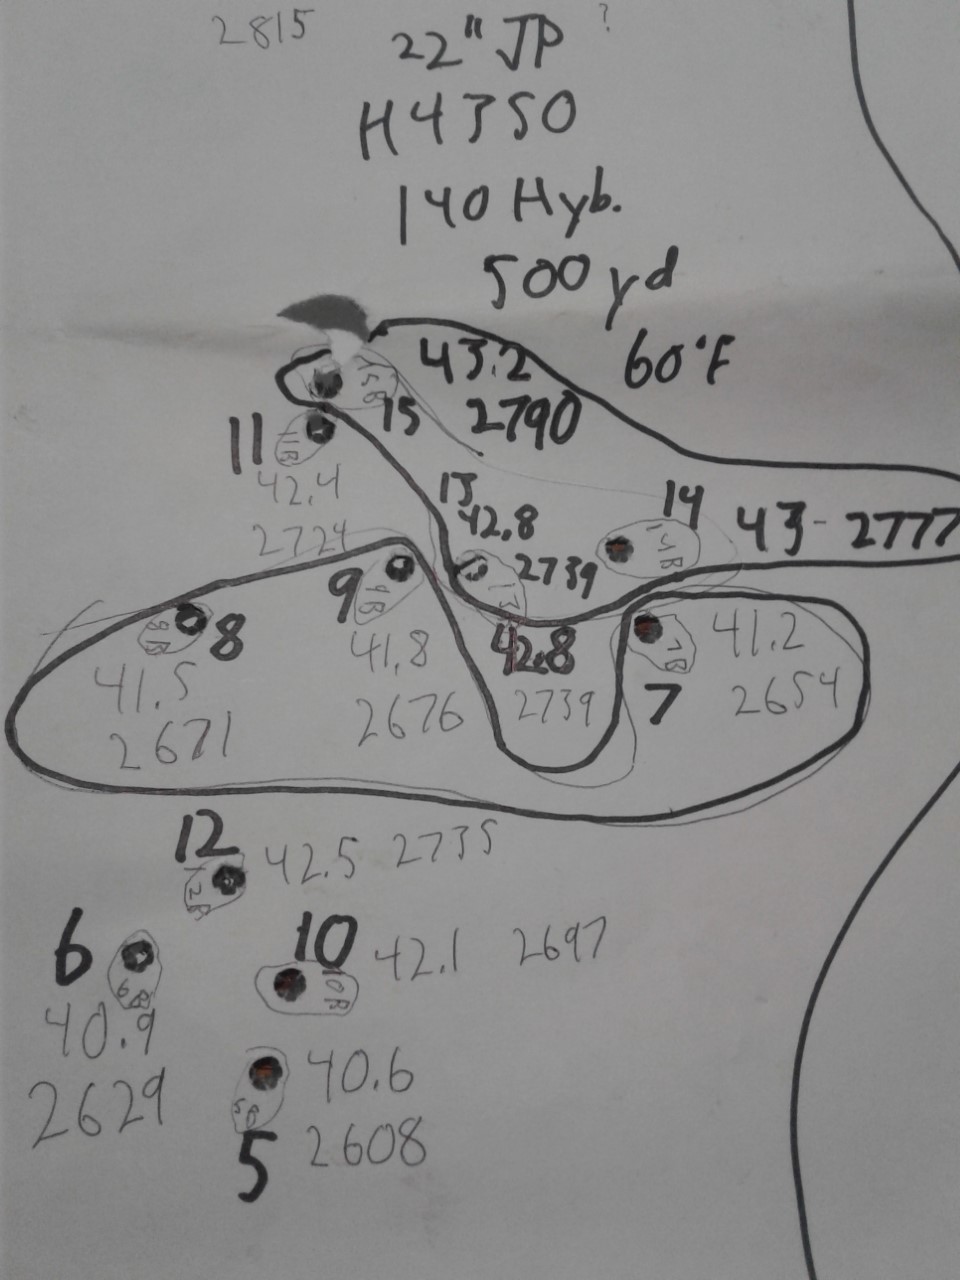 2815
22" JP ?
H4350
140 Hyb.
500 yd
60°F
43.2
2790
15B
15
11
11B
42.4
2724
13
42.8
2739
13
14
14B
43 - 2777
9
9B
41.8
2676
8B
8
41.5
2671
42.8
2739
7B
7
41.2
2654
12
12B
42.5 2735
6
6B
40.9
2629
10
10B
42.1 2697
40.6
2608
5